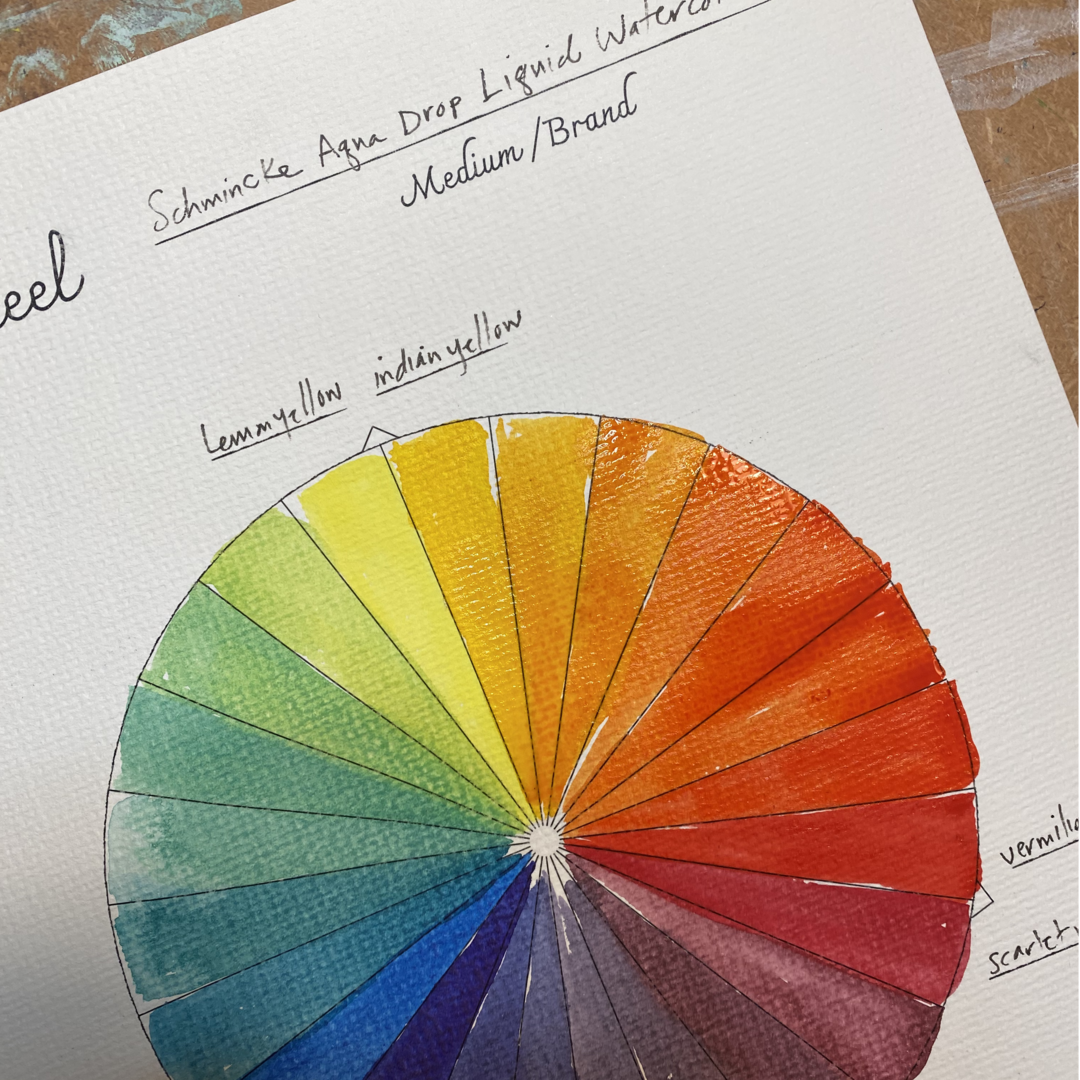 Schmincke Aqua Drop Liquid Watercol
Medium/Brand
eel
lemmyellow indianyellow
vermilio
scarlet